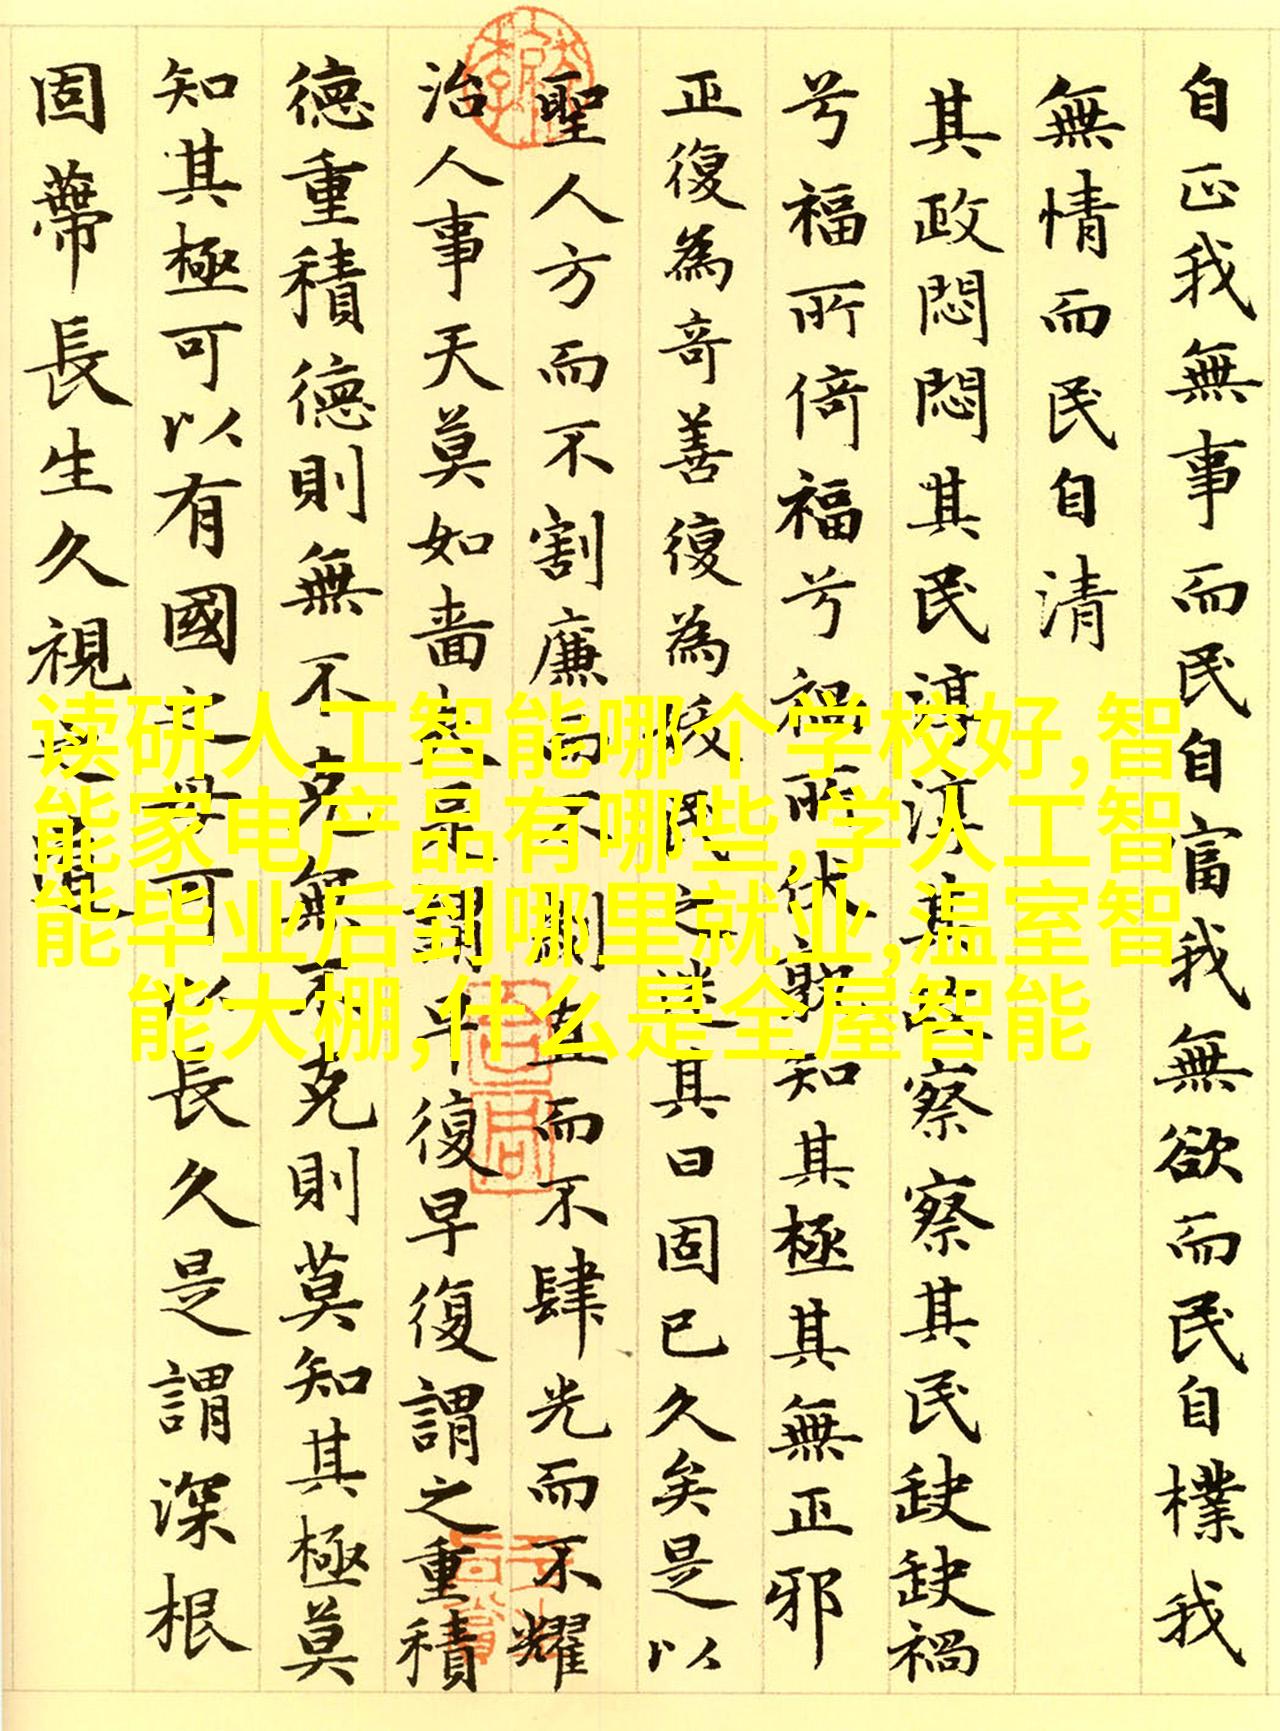 自正我無事而民自富我無欲而民自樸我
無情而民自清
其政悶悶其民淳淳其政察察其民缺缺禍
兮福所倚福兮禍所伏孰知其極其無正邪
正復為奇善復為妖民之迷其日固已久矣是以
聖人方而不割廉而不劌直而不肆光而不耀
治人事天莫如嗇夫是謂早復早復謂之重積
德重積德則無不克無不克則莫知其極莫
知其極可以有國之母可以長久是謂深根
固蔕長生久視之道
读研人工智能哪个学校好,智
能家电产品有哪些,学人工智
能毕业后到哪里就业,温室智
能大棚,什么是全屋智能